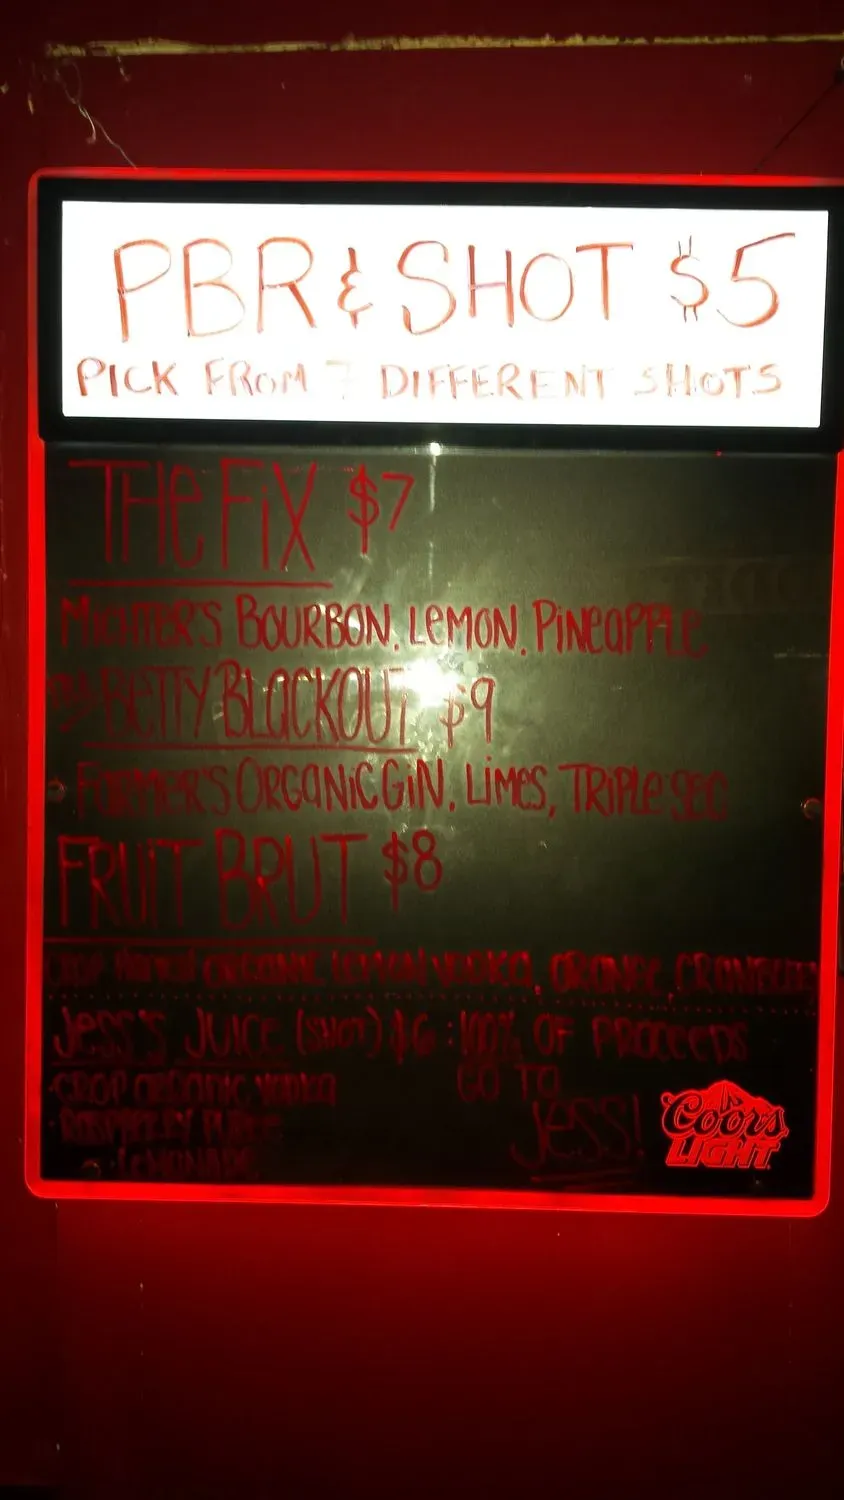 PBR & SHOT $5
PICK FROM 7 DIFFERENT SHOTS
THE FIX $7
MICHTER'S BOURBON, LEMON, PINEAPPLE
BETTY BLACKOUT $9
FARMER'S ORGANIC GIN, LIMES, TRIPLE SEC
FRUIT BRUT $8
CROP ORGANIC LEMON VODKA, ORANGE, CRANBERRY
JESS'S JUICE (SHOT) $6 : 100% OF PROCEEDS
GO TO
CROP ORGANIC VODKA
JESS!
RASPBERRY PUREE
LEMONADE
Coors
LIGHT